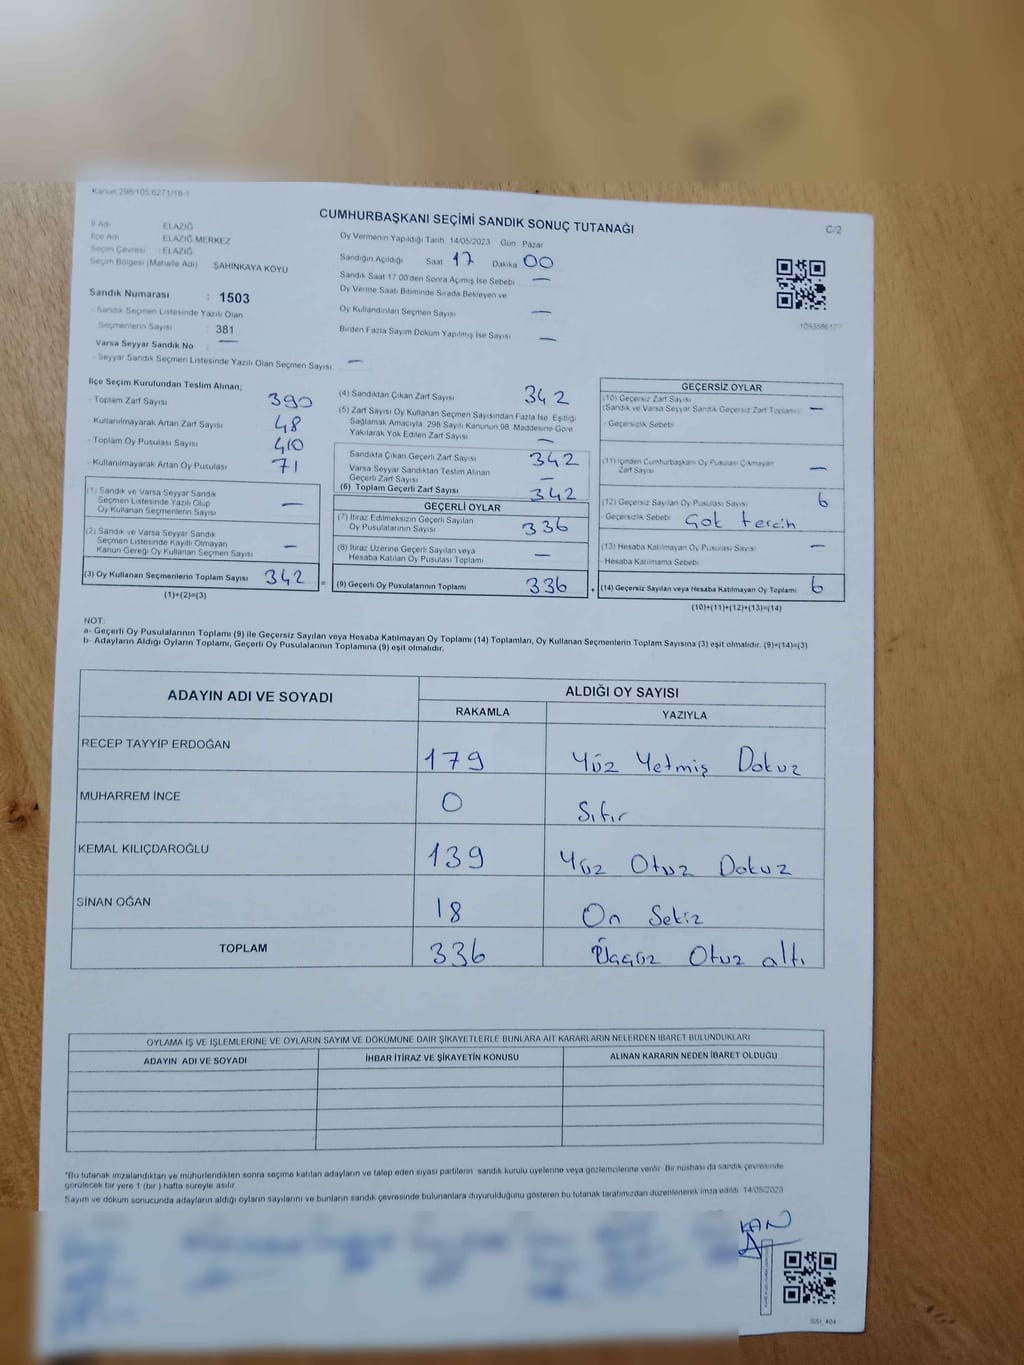 Kanun 298/105.6271/16-1
CUMHURBAŞKANI SEÇİMİ SANDIK SONUÇ TUTANAĞI
C/2
İl Adı : ELAZIĞ
İlçe Adı : ELAZIĞ MERKEZ
Seçim Çevresi : ELAZIĞ
Seçim Bölgesi (Mahalle Adı) : ŞAHİNKAYA KOYU
Sandık Numarası : 1503
- Sandık Seçmen Listesinde Yazılı Olan
Seçmenlerin Sayısı : 381
Varsa Seyyar Sandık No : —
- Seyyar Sandık Seçmen Listesinde Yazılı Olan Seçmen Sayısı : —
Oy Vermenin Yapıldığı Tarih 14/05/2023 Gün Pazar
Sandığın Açıldığı Saat 17 Dakika 00
Sandık Saat 17 00'den Sonra Açmış İse Sebebi —
Oy Verme Saati Bitiminde Sırada Bekleyen ve
Oy Kullandırılan Seçmen Sayısı —
Birden Fazla Sayım Döküm Yapılmış İse Sayısı —
İlçe Seçim Kurulundan Teslim Alınan;
- Toplam Zarf Sayısı 390
- Kullanılmayarak Artan Zarf Sayısı 48
- Toplam Oy Pusulası Sayısı 410
- Kullanılmayarak Artan Oy Pusulası 71
(1) Sandık ve Varsa Seyyar Sandık
Seçmen Listesinde Yazılı Olup
Oy Kullanan Seçmenlerin Sayısı —
(2) Sandık ve Varsa Seyyar Sandık
Seçmen Listesinde Kayıtlı Olmayan
Kanun Gereği Oy Kullanan Seçmen Sayısı —
(3) Oy Kullanan Seçmenlerin Toplam Sayısı 342 =
(1)+(2)=(3)
(4) Sandıktan Çıkan Zarf Sayısı 342
(5) Zarf Sayısı Oy Kullanan Seçmen Sayısından Fazla İse, Eşitliği
Sağlamak Amacıyla, 298 Sayılı Kanunun 98. Maddesine Göre
Yakılarak Yok Edilen Zarf Sayısı —
Sandıkta Çıkan Geçerli Zarf Sayısı 342
Varsa Seyyar Sandıktan Teslim Alınan
Geçerli Zarf Sayısı —
(6) Toplam Geçerli Zarf Sayısı 342
GEÇERLİ OYLAR
(7) İtiraz Edilmeksizin Geçerli Sayılan
Oy Pusulalarının Sayısı 336
(8) İtiraz Üzerine Geçerli Sayılan veya
Hesaba Katılan Oy Pusulası Toplamı —
(9) Geçerli Oy Pusulalarının Toplamı 336 +
GEÇERSİZ OYLAR
(10) Geçersiz Zarf Sayısı
(Sandık ve Varsa Seyyar Sandık Geçersiz Zarf Toplamı) —
- Geçersizlik Sebebi
(11) İçinden Cumhurbaşkanı Oy Pusulası Çıkmayan
Zarf Sayısı —
(12) Geçersiz Sayılan Oy Pusulası Sayısı 6
- Geçersizlik Sebebi Çok tercih
(13) Hesaba Katılmayan Oy Pusulası Sayısı —
- Hesaba Katılmama Sebebi
(14) Geçersiz Sayılan veya Hesaba Katılmayan Oy Toplamı 6
(10)+(11)+(12)+(13)=(14)
NOT:
a- Geçerli Oy Pusulalarının Toplamı (9) ile Geçersiz Sayılan veya Hesaba Katılmayan Oy Toplamı (14) Toplamları, Oy Kullanan Seçmenlerin Toplam Sayısına (3) eşit olmalıdır. (9)+(14)=(3)
b- Adayların Aldığı Oyların Toplamı, Geçerli Oy Pusulalarının Toplamına (9) eşit olmalıdır.
ADAYIN ADI VE SOYADI ALDIĞI OY SAYISI
RAKAMLA YAZIYLA
RECEP TAYYİP ERDOĞAN 179 Yüz Yetmiş Dokuz
MUHARREM İNCE 0 Sıfır
KEMAL KILIÇDAROĞLU 139 Yüz Otuz Dokuz
SİNAN OĞAN 18 On Sekiz
TOPLAM 336 Üçyüz Otuz altı
OYLAMA İŞ VE İŞLEMLERİNE VE OYLARIN SAYIM VE DÖKÜMÜNE DAİR ŞİKAYETLERLE BUNLARA AİT KARARLARIN NELERDEN İBARET BULUNDUKLARI
ADAYIN ADI VE SOYADI İHBAR İTİRAZ VE ŞİKAYETİN KONUSU ALINAN KARARIN NEDEN İBARET OLDUĞU
*Bu tutanak imzalandıktan ve mühürlendikten sonra seçime katılan adayların ve talep eden siyasi partilerin sandık kurulu üyelerine veya gözlemcilerine verilir. Bir nüshası da sandık çevresinde
görülecek bir yere 1 (bir) hafta süreyle asılır.
Sayım ve döküm sonucunda adayların aldığı oyların sayılarını ve bunların sandık çevresinde bulunanlara duyurulduğunu gösteren bu tutanak tarafımızdan düzenlenerek imza edildi. 14/05/2023
KAN